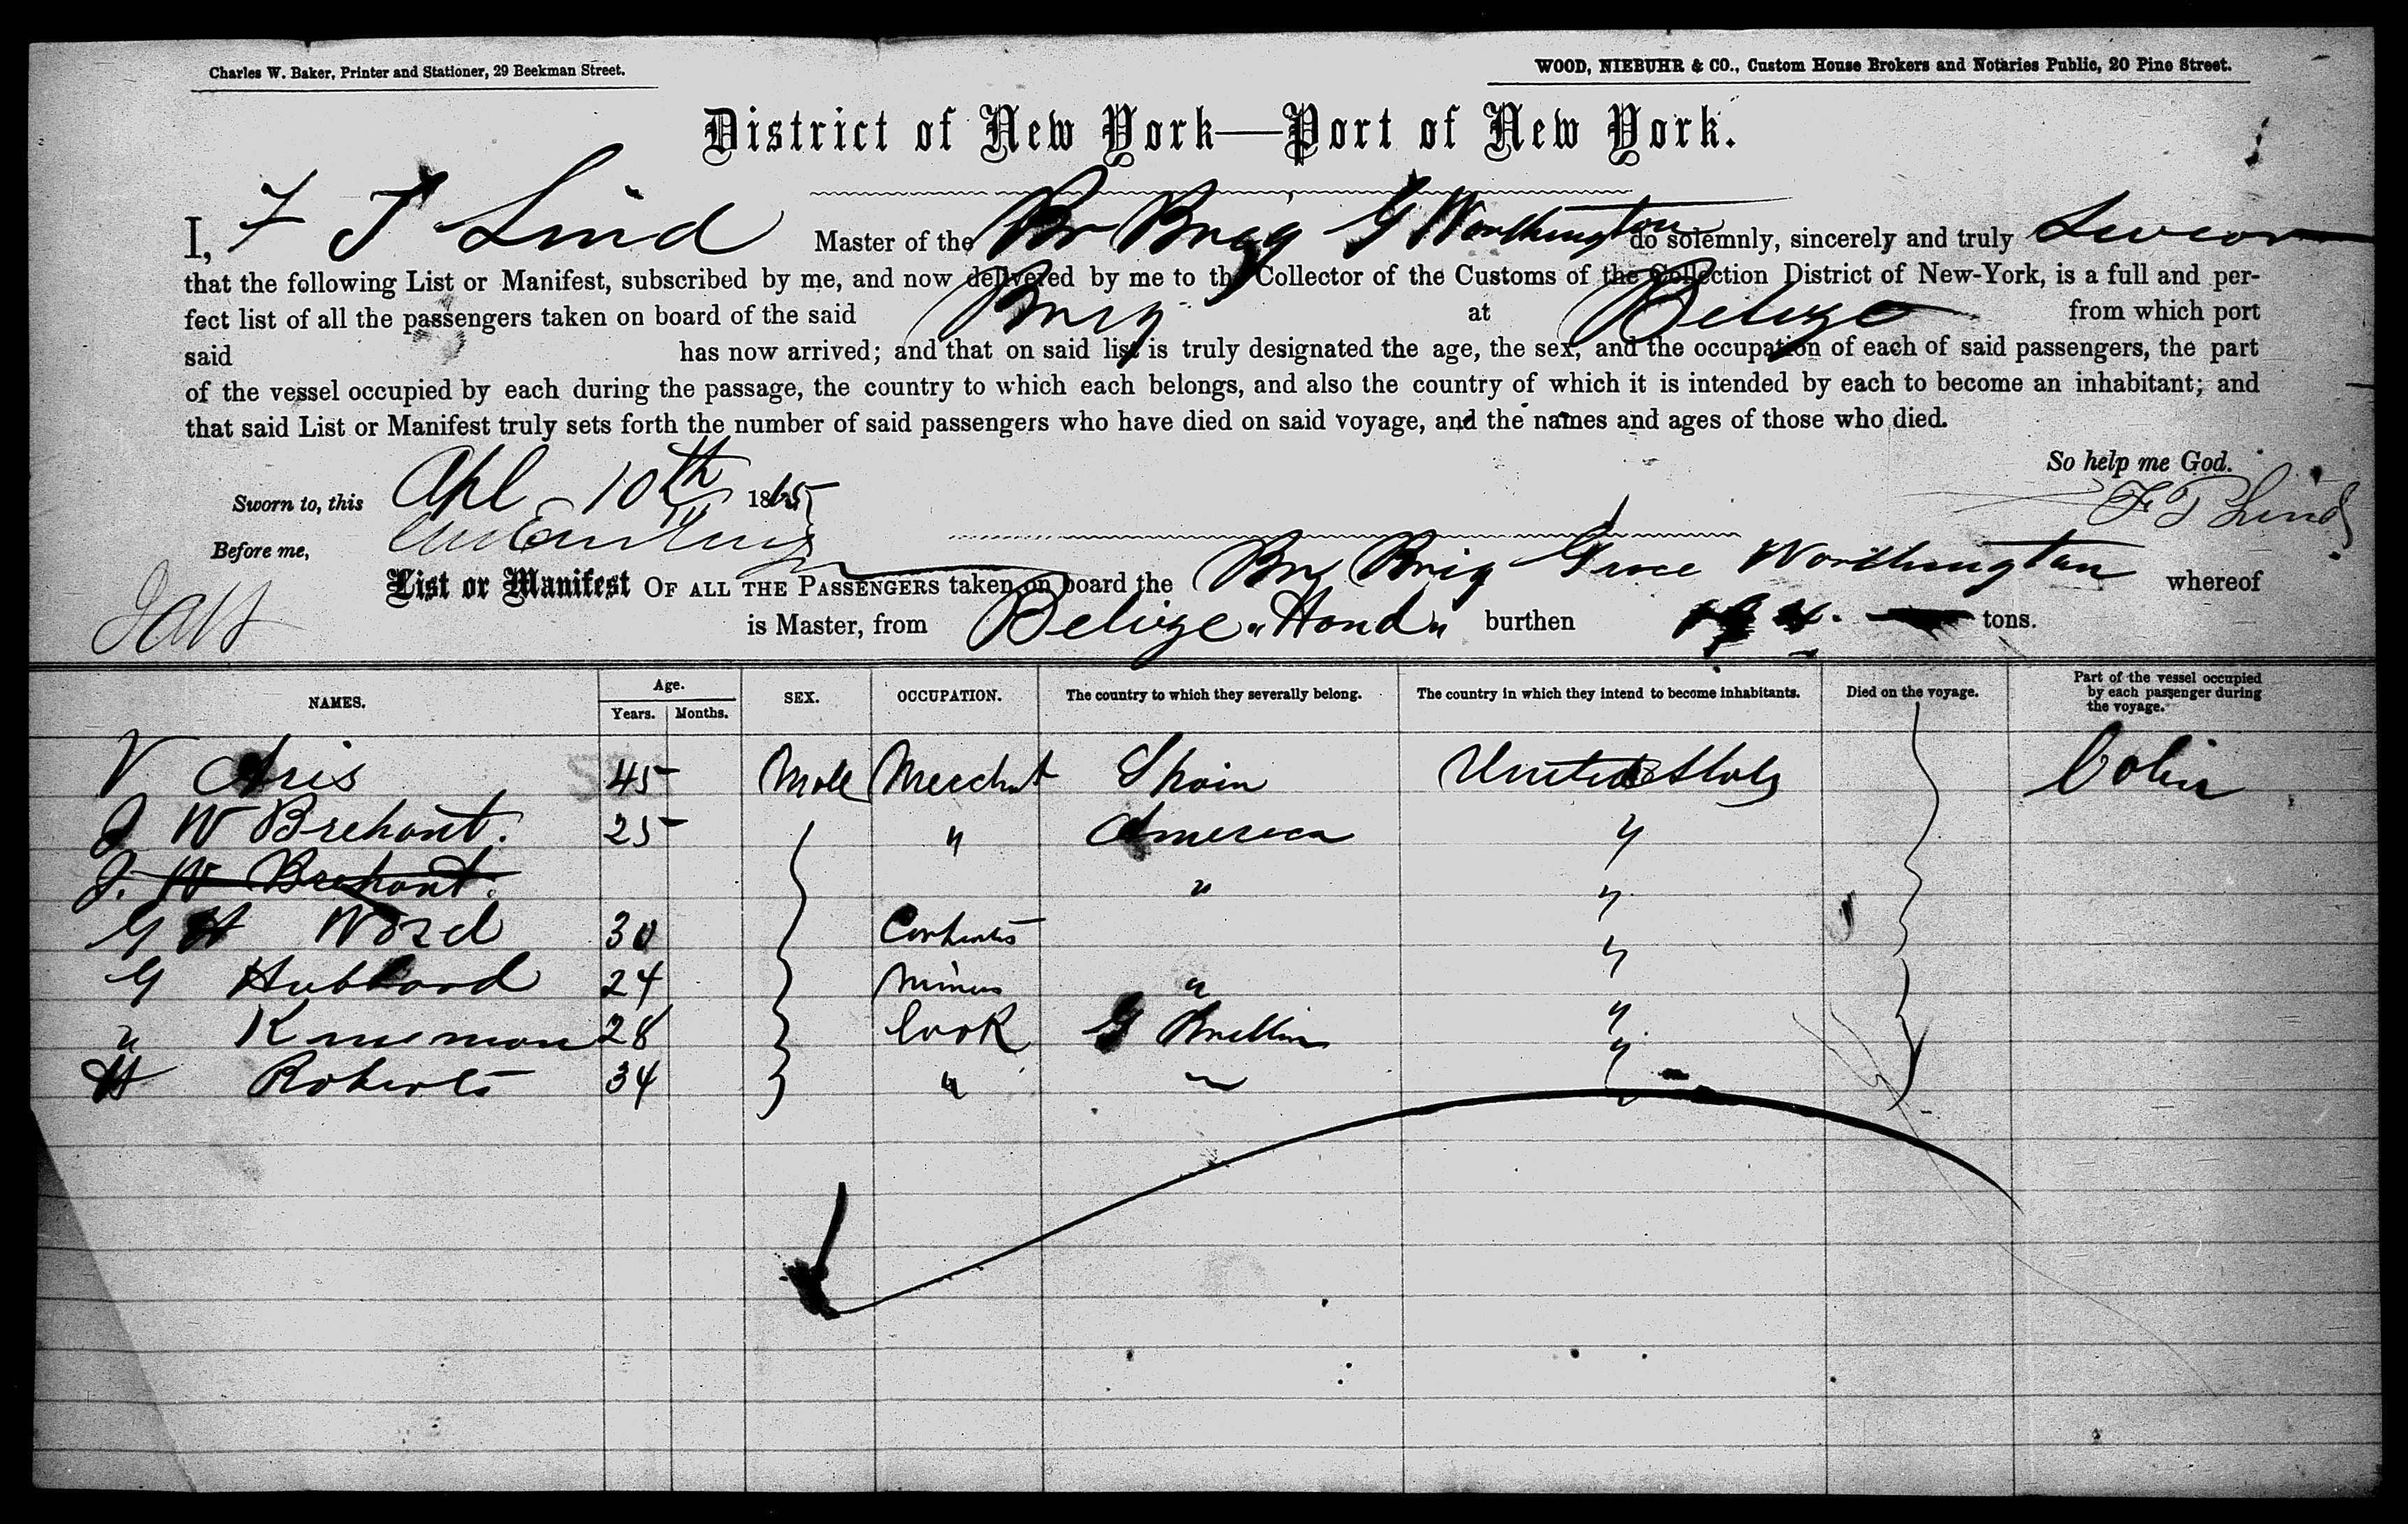 Charles W. Baker, Printer and Stationer, 29 Beekman Street.
WOOD, NIEBUHR & CO., Custom House Brokers and Notaries Public, 20 Pine Street.
District of New York—Port of New York.
I, F T Lind Master of the Br Brig G Worthington do solemnly, sincerely and truly Swear
that the following List or Manifest, subscribed by me, and now delivered by me to the Collector of the Customs of the Collection District of New-York, is a full and per-
fect list of all the passengers taken on board of the said Brig at Belize from which port
said has now arrived; and that on said list is truly designated the age, the sex, and the occupation of each of said passengers, the part
of the vessel occupied by each during the passage, the country to which each belongs, and also the country of which it is intended by each to become an inhabitant; and
that said List or Manifest truly sets forth the number of said passengers who have died on said voyage, and the names and ages of those who died.
So help me God.
Sworn to, this Apl 10th 1865
F T Lind
Before me,
List or Manifest OF ALL THE PASSENGERS taken on board the Br Brig Grace Worthington whereof
is Master, from Belize "Hond" burthen tons.
NAMES. Age. Years. Months. SEX. OCCUPATION. The country to which they severally belong. The country in which they intend to become inhabitants. Died on the voyage. Part of the vessel occupied by each passenger during the voyage.
V Aris 45 Male Merchant Spain United States Cabin
J W Brehant. 25 " America "
J. W Brehant. " "
G H Ward 30 "
G Hubbard 24 " "
" 28 Cook G Brittin "
H Roberts 34 " "